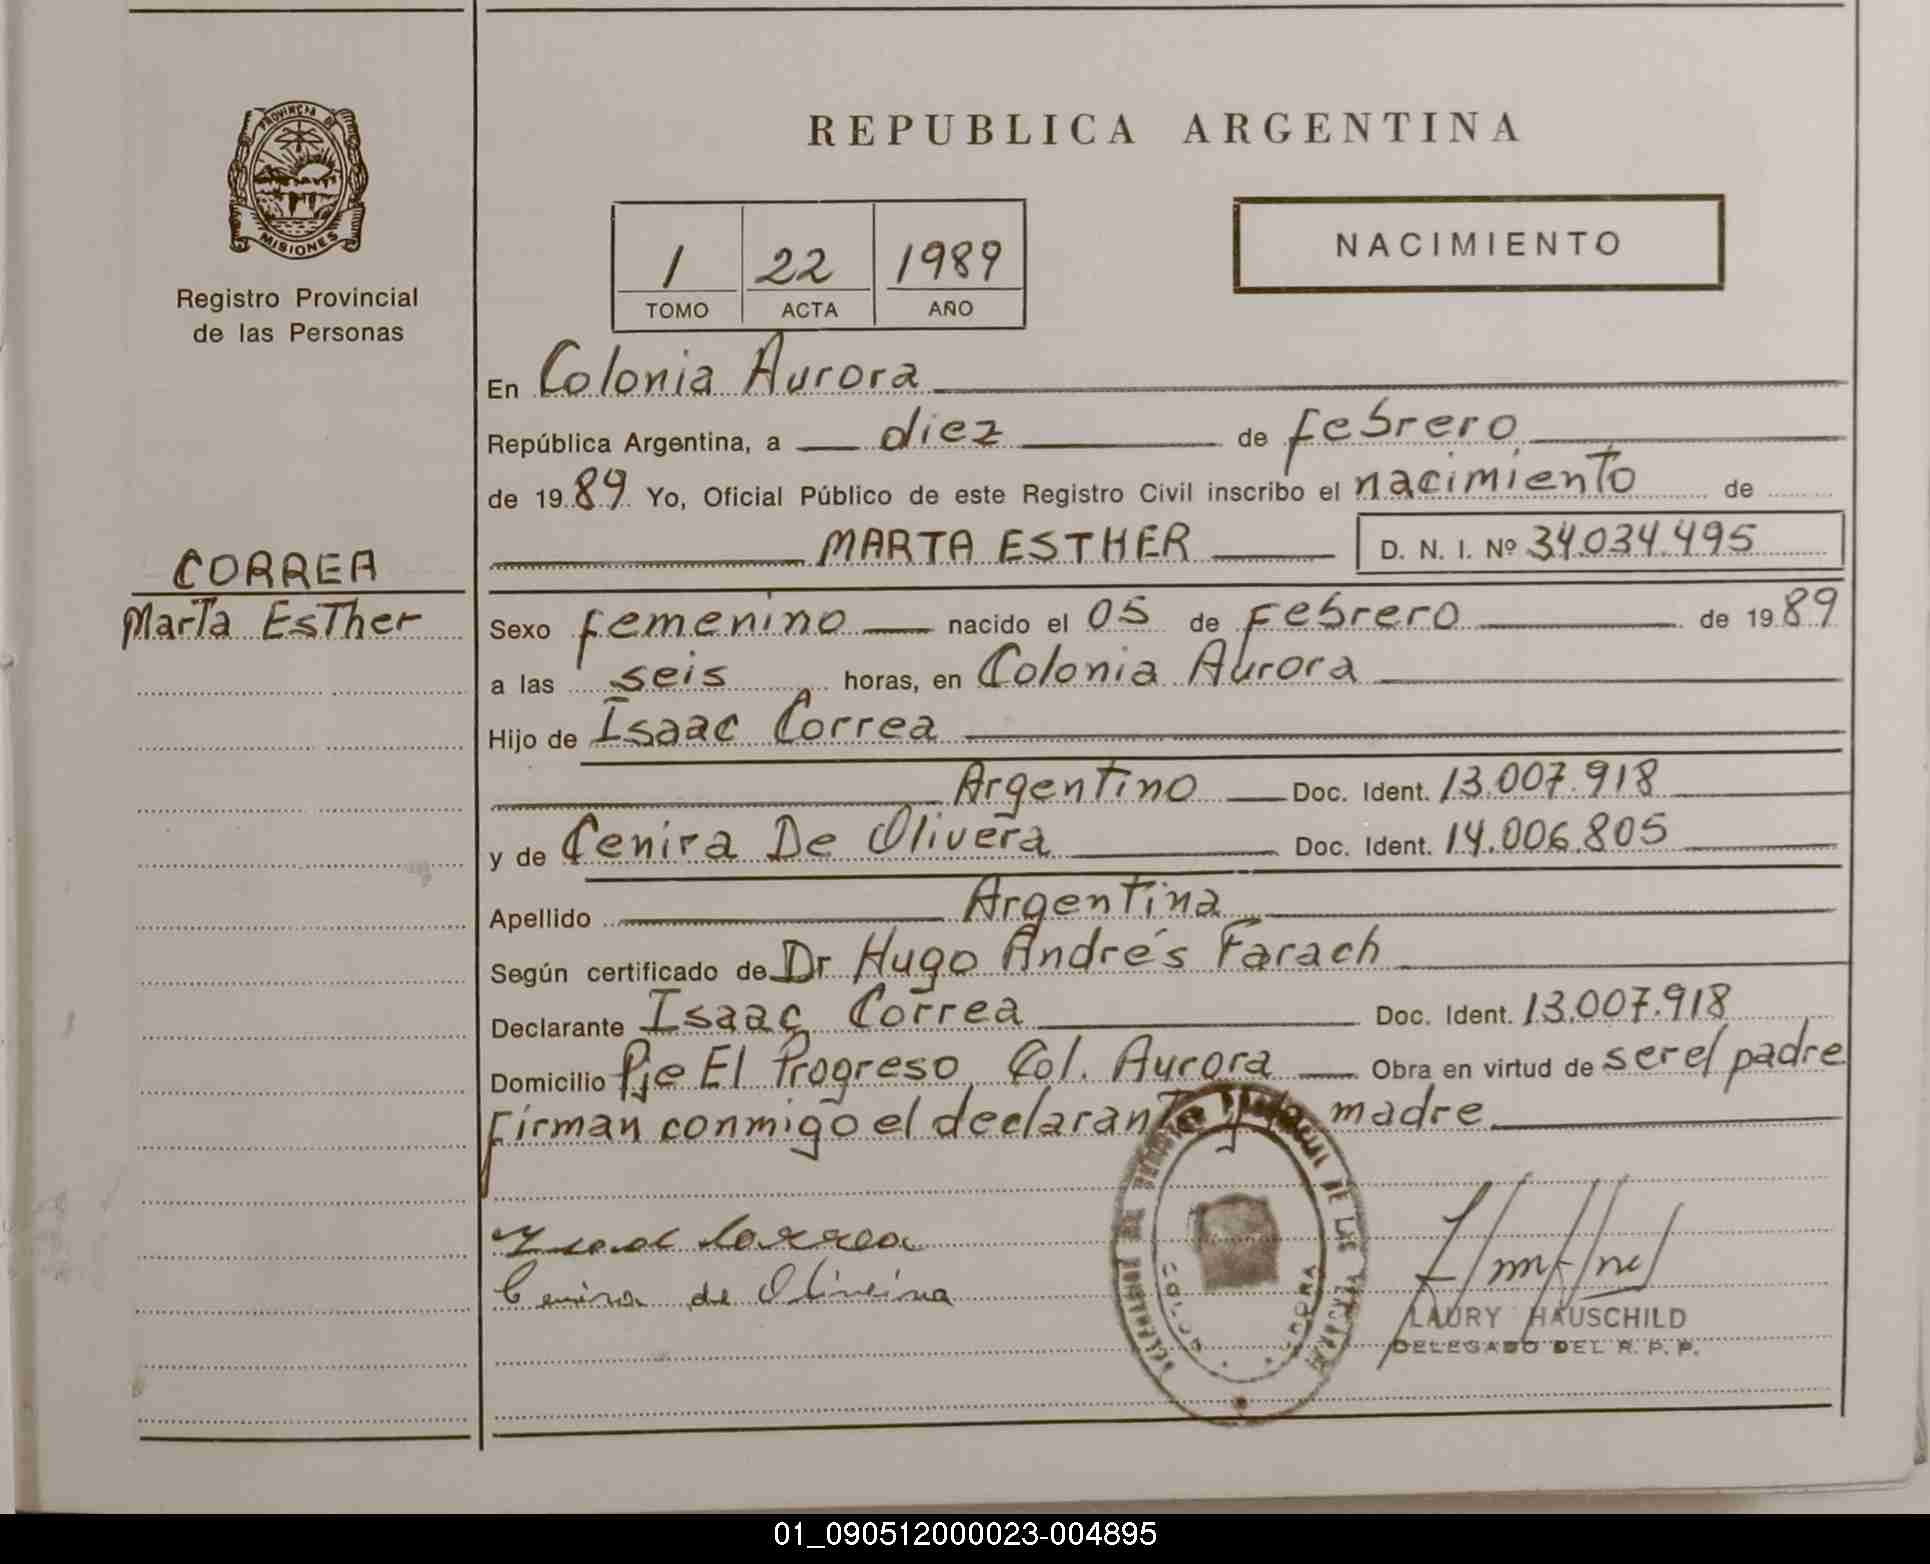 PROVINCIA DE
MISIONES
Registro Provincial
de las Personas
CORREA
Marta Esther
REPUBLICA ARGENTINA
1 22 1989
TOMO ACTA AÑO
NACIMIENTO
En Colonia Aurora
República Argentina, a diez de febrero
de 1989 Yo, Oficial Público de este Registro Civil inscribo el nacimiento de
MARTA ESTHER D. N. I. Nº 34.034.495
Sexo femenino nacido el 05 de Febrero de 1989
a las seis horas, en Colonia Aurora
Hijo de Isaac Correa
Argentino Doc. Ident. 13.007.918
y de Cenira De Olivera Doc. Ident. 14.006.805
Apellido Argentina
Según certificado de Dr Hugo Andrés Farach
Declarante Isaac Correa Doc. Ident. 13.007.918
Domicilio Pje El Progreso Col. Aurora Obra en virtud de ser el padre
Firman conmigo el declarante y la madre
DE LAS
Isaac Correa
Cenira de Oliveira
LAURY HAUSCHILD
DELEGADO DEL R. P. P.
01_090512000023-004895